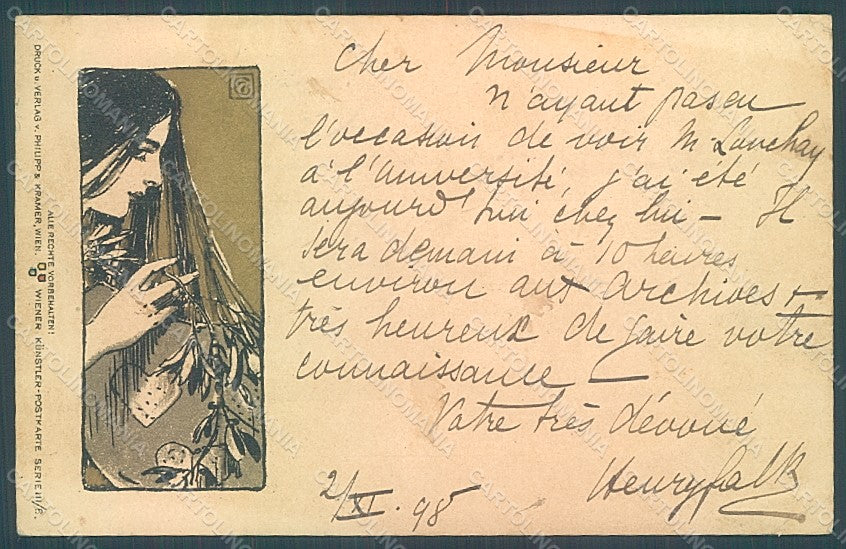 Cher Monsieur
n'ayant pas eu
l'occasion de voir M. Lonchay
à l'université, j'ai été
aujourd'hui chez lui – Il
sera demain à 10 heures
environ aux Archives –
très heureux de faire votre
connaissance –
Votre très dévoué
Henry Falk
2/XI. 98
DRUCK u. VERLAG v. PHILIPP & KRAMER, WIEN.
WIENER KÜNSTLER-POSTKARTE SERIE III/6.
ALLE RECHTE VORBEHALTEN!
CARTOLINOMANIA